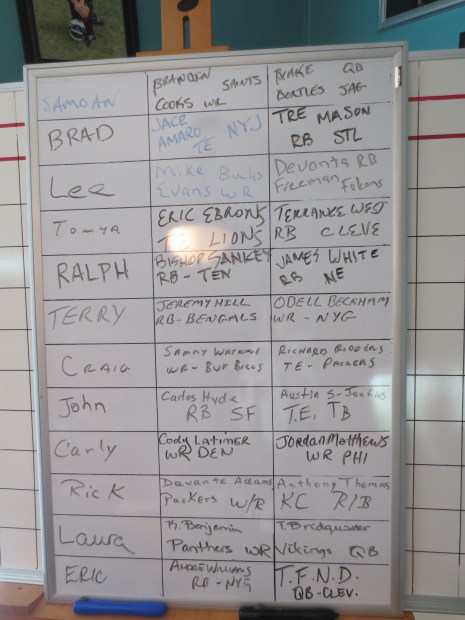 SAMOAN
BRANDEN SAINTS
COOKS WR
BLAKE QB
BORTLES JAG
BRAD
JACE
AMARO NYJ
TE
TRE MASON
RB STL
Lee
Mike Bucks
Evans WR
Devonta RB
Freeman Falcons
Tonya
ERIC EBRON
TE LIONS
TERRANCE WEST
RB CLEVE
RALPH
BISHOP SANKEY
RB - TEN
JAMES WHITE
RB NE
TERRY
JEREMY HILL
RB-BENGALS
ODELL BECKHAM
WR - NYG
CRAIG
SAMMY WATKINS
WR - BUF BILLS
RICHARD RODGERS
TE - PACKERS
John
Carlos Hyde
RB SF
Austin S-Jenkins
T.E. TB
Carly
Cody Latimer
WR DEN
Jordan Matthews
WR PHI
RICK
Davante Adams
Packers W/R
Anthony Thomas
KC R/B
Laura
K. Benjamin
Panthers WR
T. Bridgewater
Vikings QB
ERIC
ANDRE WILLIAMS
RB - NYG
T.F.N.D.
QB-CLEV.